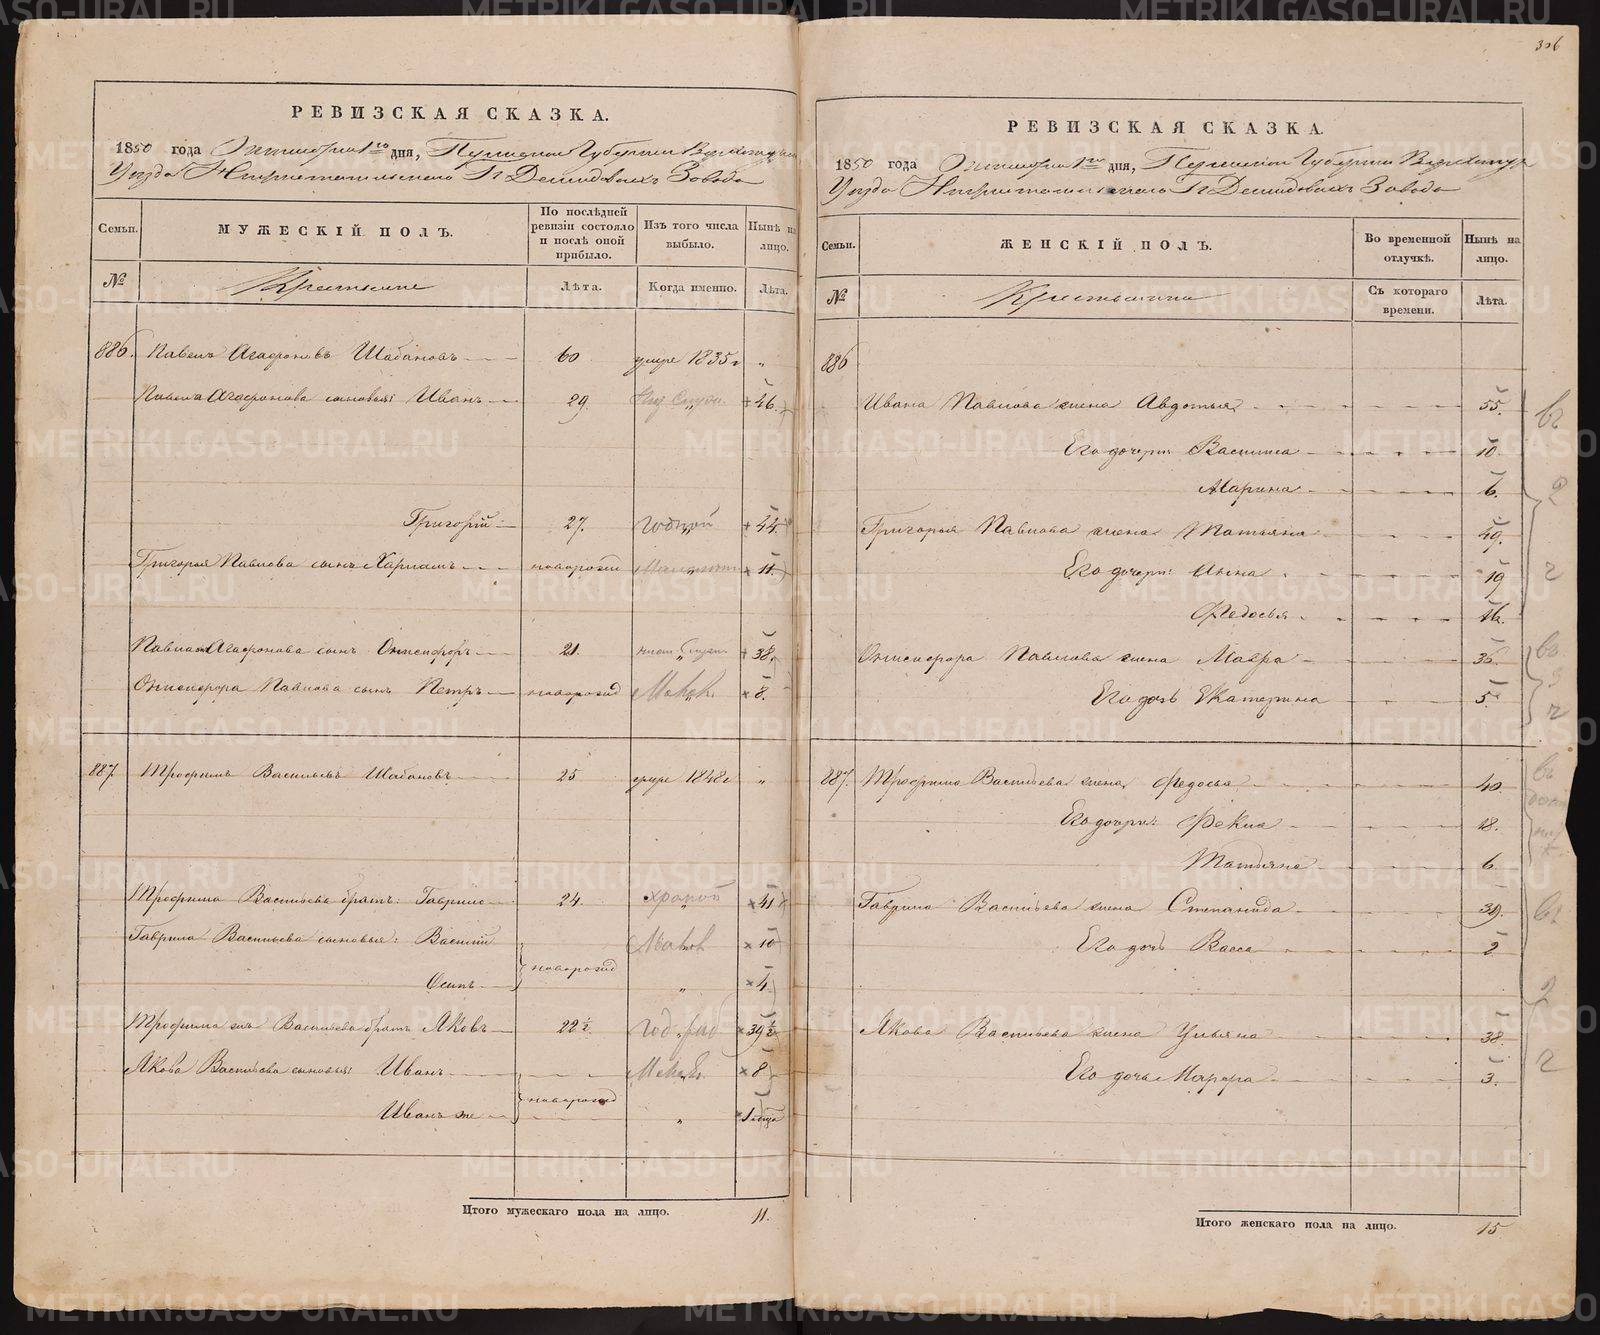 306
РЕВИЗСКАЯ СКАЗКА.
1850 года Октября 1го дня, Пермской Губернии Верхотурскаго
Уезда Нижнетагильскаго Гг Демидовыхъ Завода
Семьи. МУЖЕСКІЙ ПОЛЪ. По послѣдней ревизіи состояло и послѣ оной прибыло. Изъ того числа выбыло. Нынѣ на лицо.
№ Крестьяне Лѣта. Когда именно. Лѣта.
886. Павелъ Агафоновъ Шабановъ 60 умре 1835 г "
Павла Агафонова сыновья: Иванъ 29. + 46.
Григорій 27. годной + 44.
Григорья Павлова сынъ Харламъ новорожд + 11.
Павла Агафонова сынъ Онисифоръ 21. + 38.
Онисифора Павлова сынъ Петръ новорожд + 8.
887. Трофимъ Васильевъ Шабановъ 25 умре 1848 г "
Трофима Васильева братъ: Гаврило 24 хромой + 41
Гаврила Васильева сыновья: Василій новорожд + 10
Осипъ " + 4
Трофима Васильева братъ Яковъ 22 ½ + 39 ½
Якова Васильева сыновья: Иванъ новорожд + 8
Иванъ же " 1
Итого мужескаго пола на лицо. 11.
РЕВИЗСКАЯ СКАЗКА.
1850 года Октября 1го дня, Пермской Губернии Верхотурскаго
Уезда Нижнетагильскаго Гг Демидовыхъ Завода
Семьи. ЖЕНСКІЙ ПОЛЪ. Во временной отлучкѣ. Нынѣ на лицо.
№ Крестьянки Съ котораго времени. Лѣта.
886
Ивана Павлова жена Авдотья 55.
Его дочери: Василиса 10.
Марина 6.
Григорья Павлова жена Татьяна 49.
Его дочери: Анна 19
Федосья 16.
Онисифора Павлова жена Мавра 36.
Его дочь Екатерина 5.
887. Трофима Васильева жена Федосья 40.
Его дочери: Фекла 18.
Татьяна 6.
Гаврила Васильева жена Степанида 39.
Его дочь Васса 2
Якова Васильева жена Ульяна 38.
Его дочь Марфа 3.
Итого женскаго пола на лицо. 15
METRIKI.GASO-URAL.RU